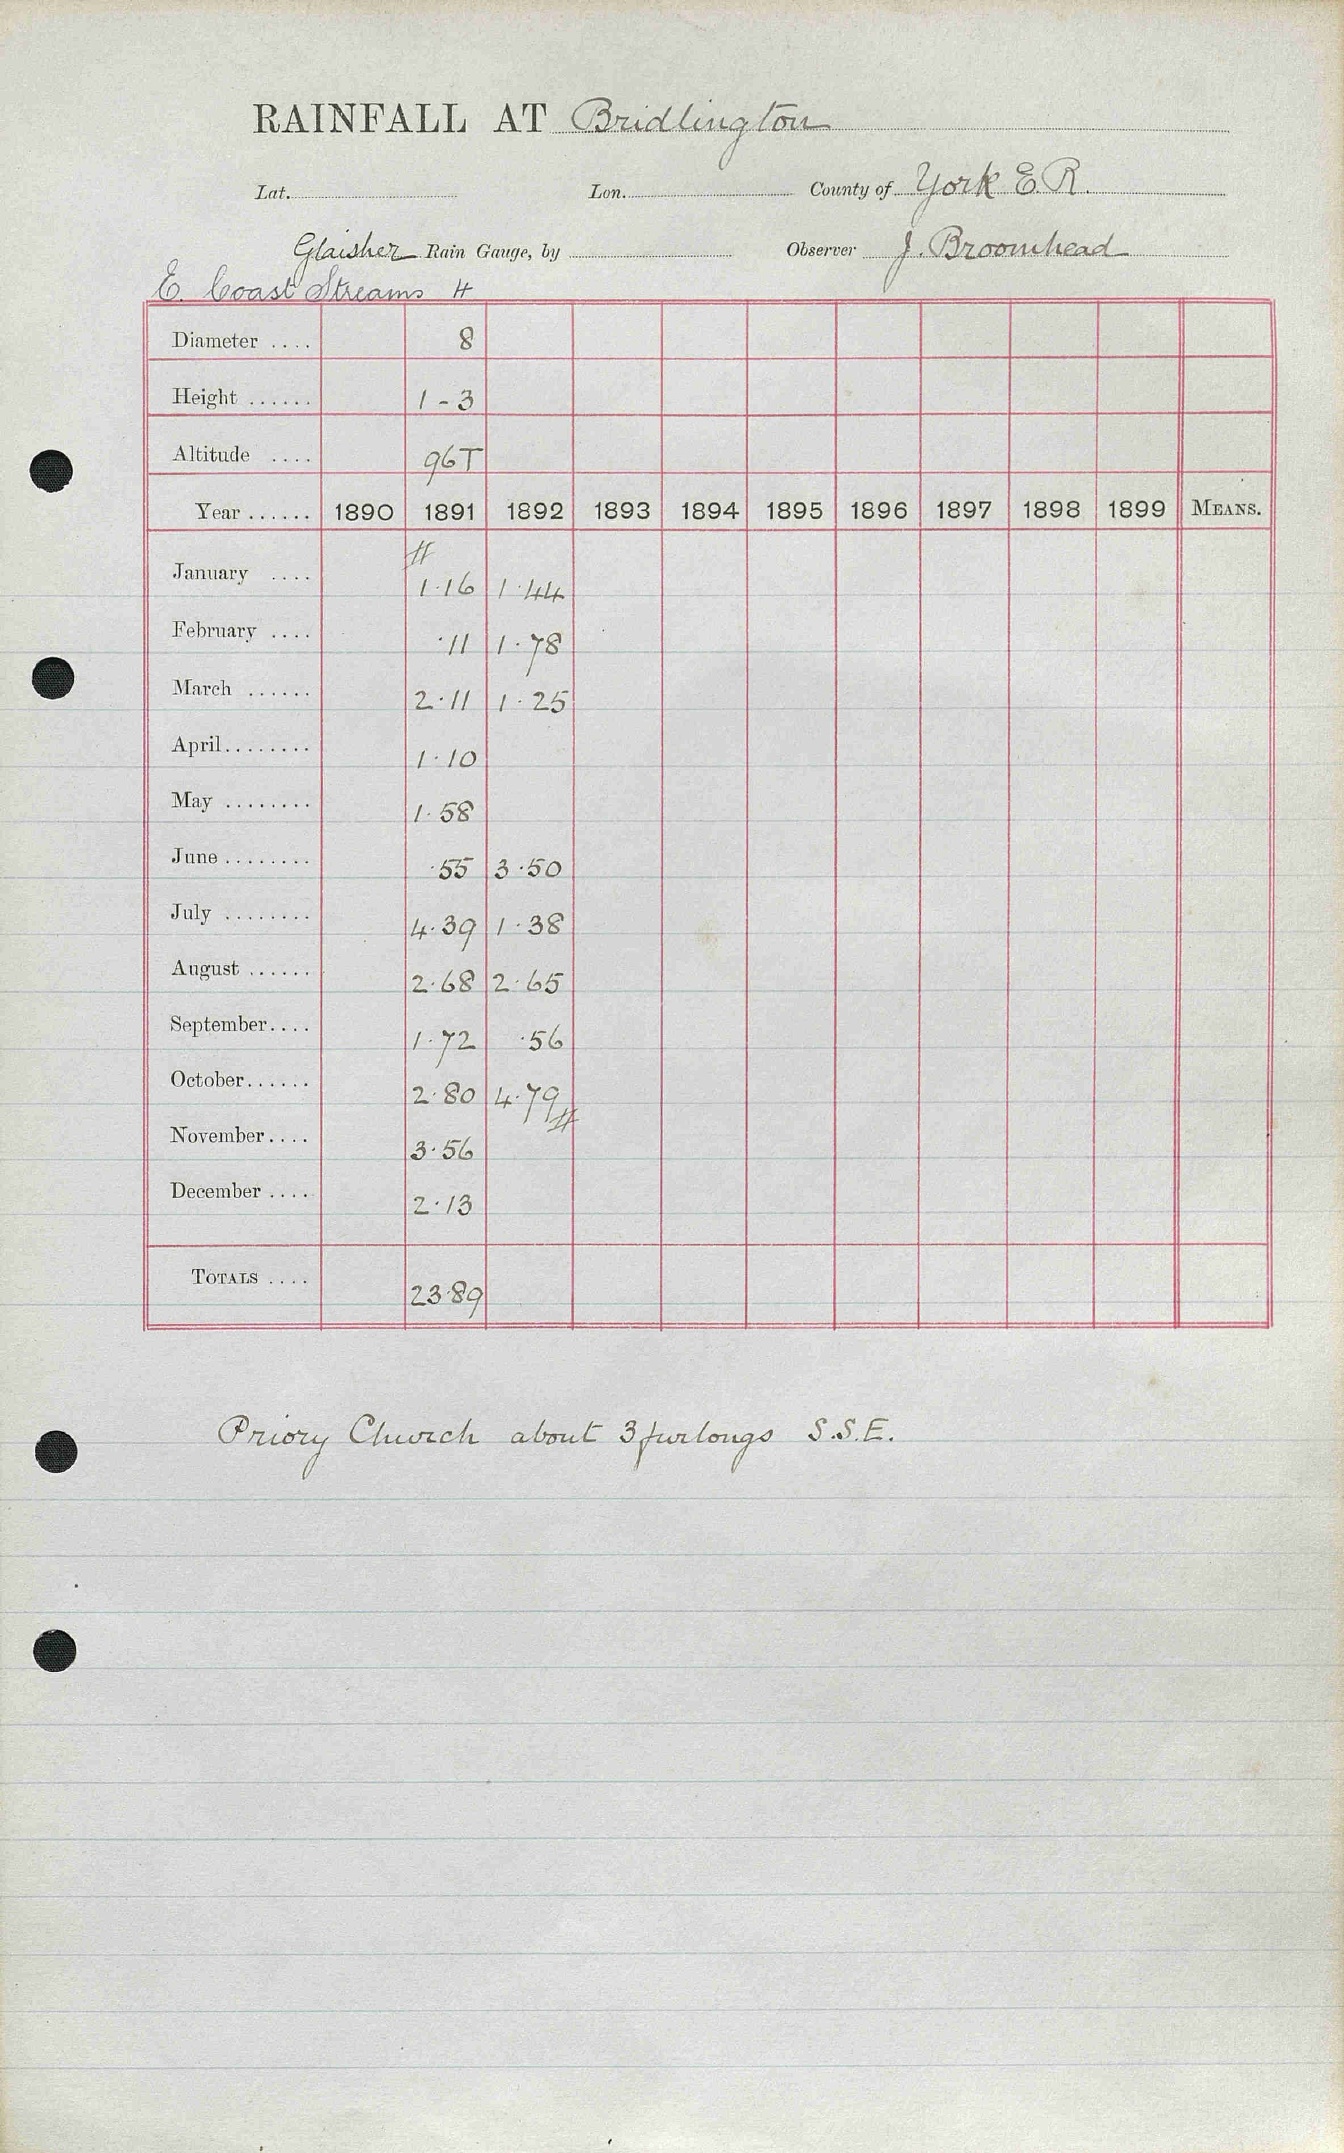 RAINFALL AT Bridlington
Lat. Lon. County of York E.R.
Glaisher Rain Gauge, by Observer J. Broomhead
E. Coast Streams 4
Diameter .... 8
Height ...... 1-3
Altitude .... 96T
Year ...... 1890 1891 1892 1893 1894 1895 1896 1897 1898 1899 MEANS.
January .... 1·16 1·44
February .... ·11 1·78
March ...... 2·11 1·25
April........ 1·10
May ........ 1·58
June ........ ·55 3·50
July ........ 4·39 1·38
August ...... 2·68 2·65
September.... 1·72 ·56
October...... 2·80 4·79
November.... 3·56
December .... 2·13
TOTALS .... 23·89
Priory Church about 3 furlongs S.S.E.